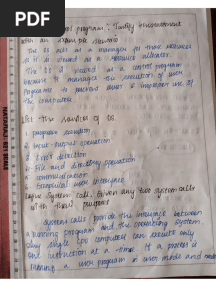 PDF
control program? Justify this statement
with an example scenario
The OS acts as a manager for these resources
so it is viewed as a resource allocator.
The OS is viewed as a control program
because it manages the execution of user
Programs to prevent error & improper use of
the computer.
List the services of OS.
1. program execution
2. Input-output operation
3. Error detection
4. File and directory operation
5. communication
6. Graphical user interface.
system calls. Given any two system calls
with their purpose
System calls provide the interface between
a running program and the operating system.
Any single CPU computer can execute only
one instruction at a time. If a process is
running a user program in user mode and needs